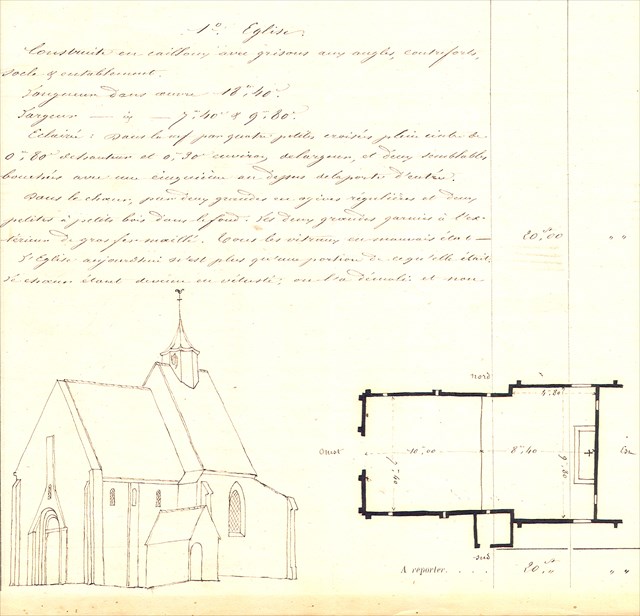 1º Eglise.
Construite en cailloux avec grisons aux angles, contreforts,
socle & entablement.
Longueur dans œuvre 18m,40c
Largeur — id — 7m,40c & 9m,80c
Eclairé : dans la nef par quatre petites croisées plein cintre de
0m,80c de hauteur et 0m,30c environ de largeur, et deux semblables
bouchées avec une cinquième au dessus de la porte d'entrée.
Dans le chœur, par deux grandes en ogives régulières et deux
petites à petits bois dans le fond. Les deux grandes garnies à l'ex-
térieur de gros fer maillé. Tous les vitraux en mauvais état — 20,00 " "
L'Eglise aujourd'hui n'est plus qu'une portion de ce qu'elle était
le chœur étant devenu en vétusté ; on l'a démoli et non-
nord
4m,80
ouest
10m,00
8m,40
7m,40
9m,80
Est
sud
A reporter. . . . . 20 " " "